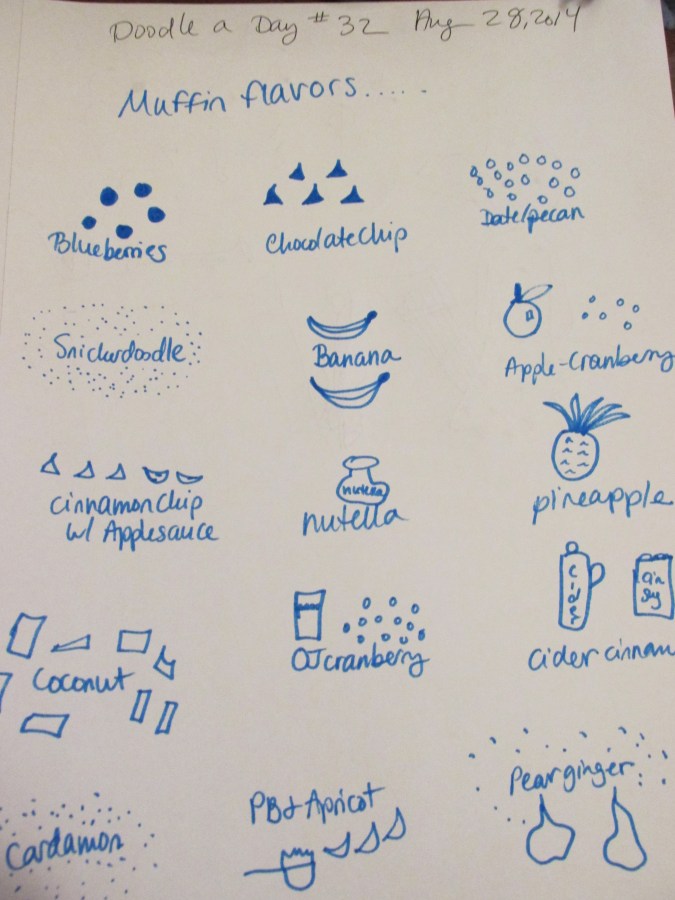 Doodle a Day #32 Aug 28, 2014
Muffin flavors.....
Blueberries
Chocolate Chip
Date/pecan
Snickerdoodle
Banana
Apple-Cranberry
cinnamon chip
w/ Applesauce
nutella
nutella
pineapple
Cider
Cin
OJ cranberry
Cider cinnam
Coconut
Cardamon
PB & Apricot
Pear ginger